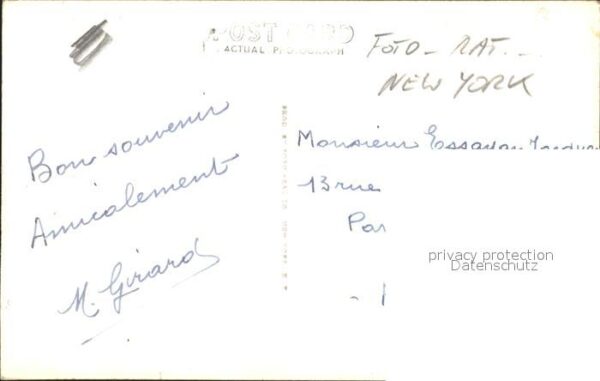 POST CARD
ACTUAL PHOTOGRAPH
FOTO-
NEW YORK
Bon souvenir
Amicalement
M. Girard
Monsieur
13 rue
Par
privacy protection
Datenschutz